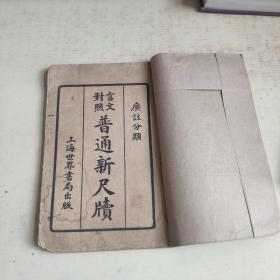 廣註分類
言文對照
普通新尺牘
上海世界書局出版